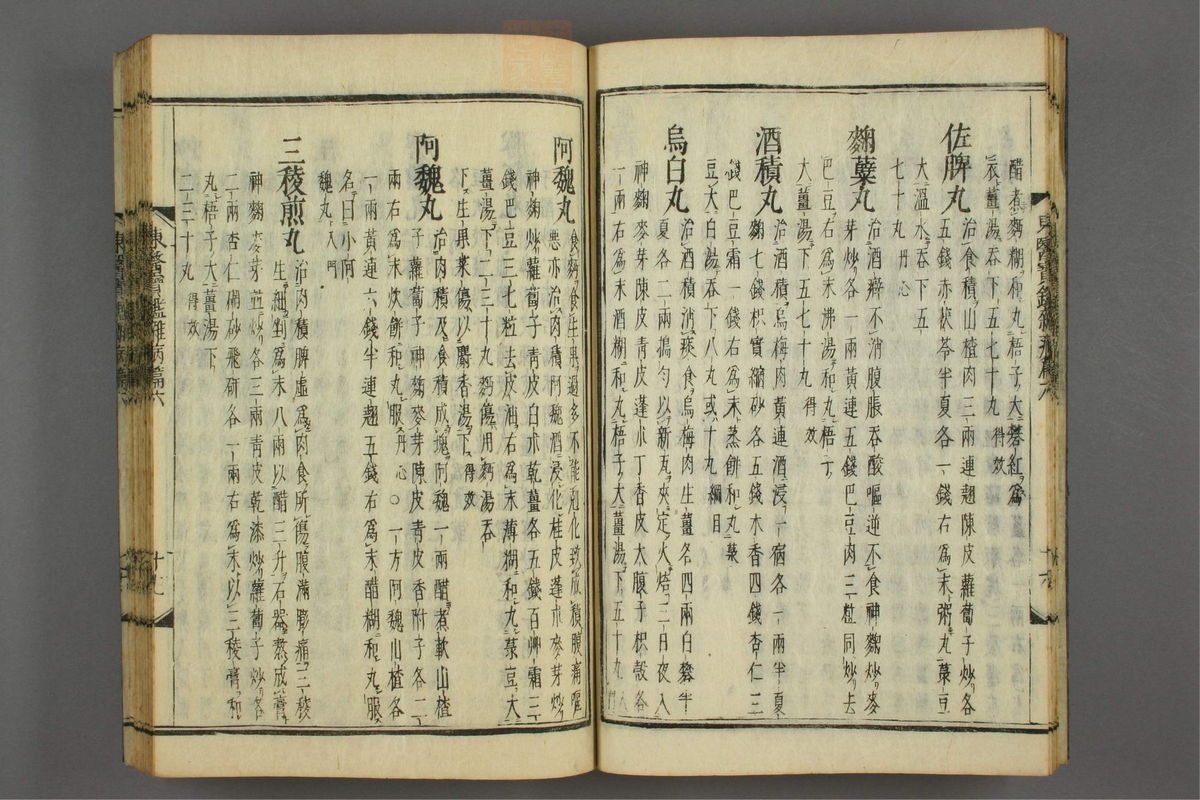 醋煮麪糊和丸梧子大礬紅爲
衣薑湯呑下五七十丸得效
佐脾丸治食積山楂肉三兩連翹陳皮蘿蔔子各
五錢赤茯苓半夏各一錢右爲末粥丸菉豆
大溫水呑下五
七十丸丹心
麴蘖丸治酒癖不消腹脹呑酸嘔逆不食神麴炒麥
芽炒各一兩黃連五錢巴豆肉三粒同炒去
巴豆右爲末沸湯和丸梧子
大薑湯下五七十丸得效
酒積丸治酒積烏梅肉黃連酒浸一宿各一兩半夏
麴七錢枳實縮砂各五錢木香四錢杏仁三
錢巴豆霜一錢右爲末蒸餠和丸菉
豆大白湯呑下八丸或十丸綱目
烏白丸治酒積消痰食烏梅肉生薑各四兩白礬半
夏各二兩搗勻以新瓦夾定火焙三日夜入
神麴麥芽陳皮靑皮蓬朮丁香皮大腹子枳殼各
一兩右爲末酒糊和丸梧子大薑湯下五十丸入門
阿魏丸食麪食生果過多不能剋化致成積腹痛
惡亦治肉積阿魏酒浸化桂皮蓬朮麥芽炒
神麴炒蘿蔔子靑皮白朮乾薑各五錢百艸霜三
錢巴豆三七粒去皮油右爲末薄糊和丸菉豆大
薑湯下二三十丸麪傷用麪湯呑
下生果菜傷以麝香湯下得效
阿魏丸治肉積及食積成塊阿魏一兩醋煮軟山楂
子蘿蔔子神麴麥芽陳皮靑皮香附子各二
兩右爲末炊餠和丸服丹心○一方阿魏山楂各
一兩黃連六錢半連翹五錢右爲末醋糊和丸服
名曰小阿
魏丸入門
三稜煎丸治肉積脾虛爲肉食所傷腹滿膨痛三稜
生細剉爲末八兩以醋三升石器熬成膏
神麴麥芽並炒各三兩靑皮乾漆炒蘿蔔子炒各
二兩杏仁硇砂飛硏各一兩右爲末以三稜膏和
丸梧子大薑湯下
二三十丸得效
東醫寶鑑雜病篇六
十九